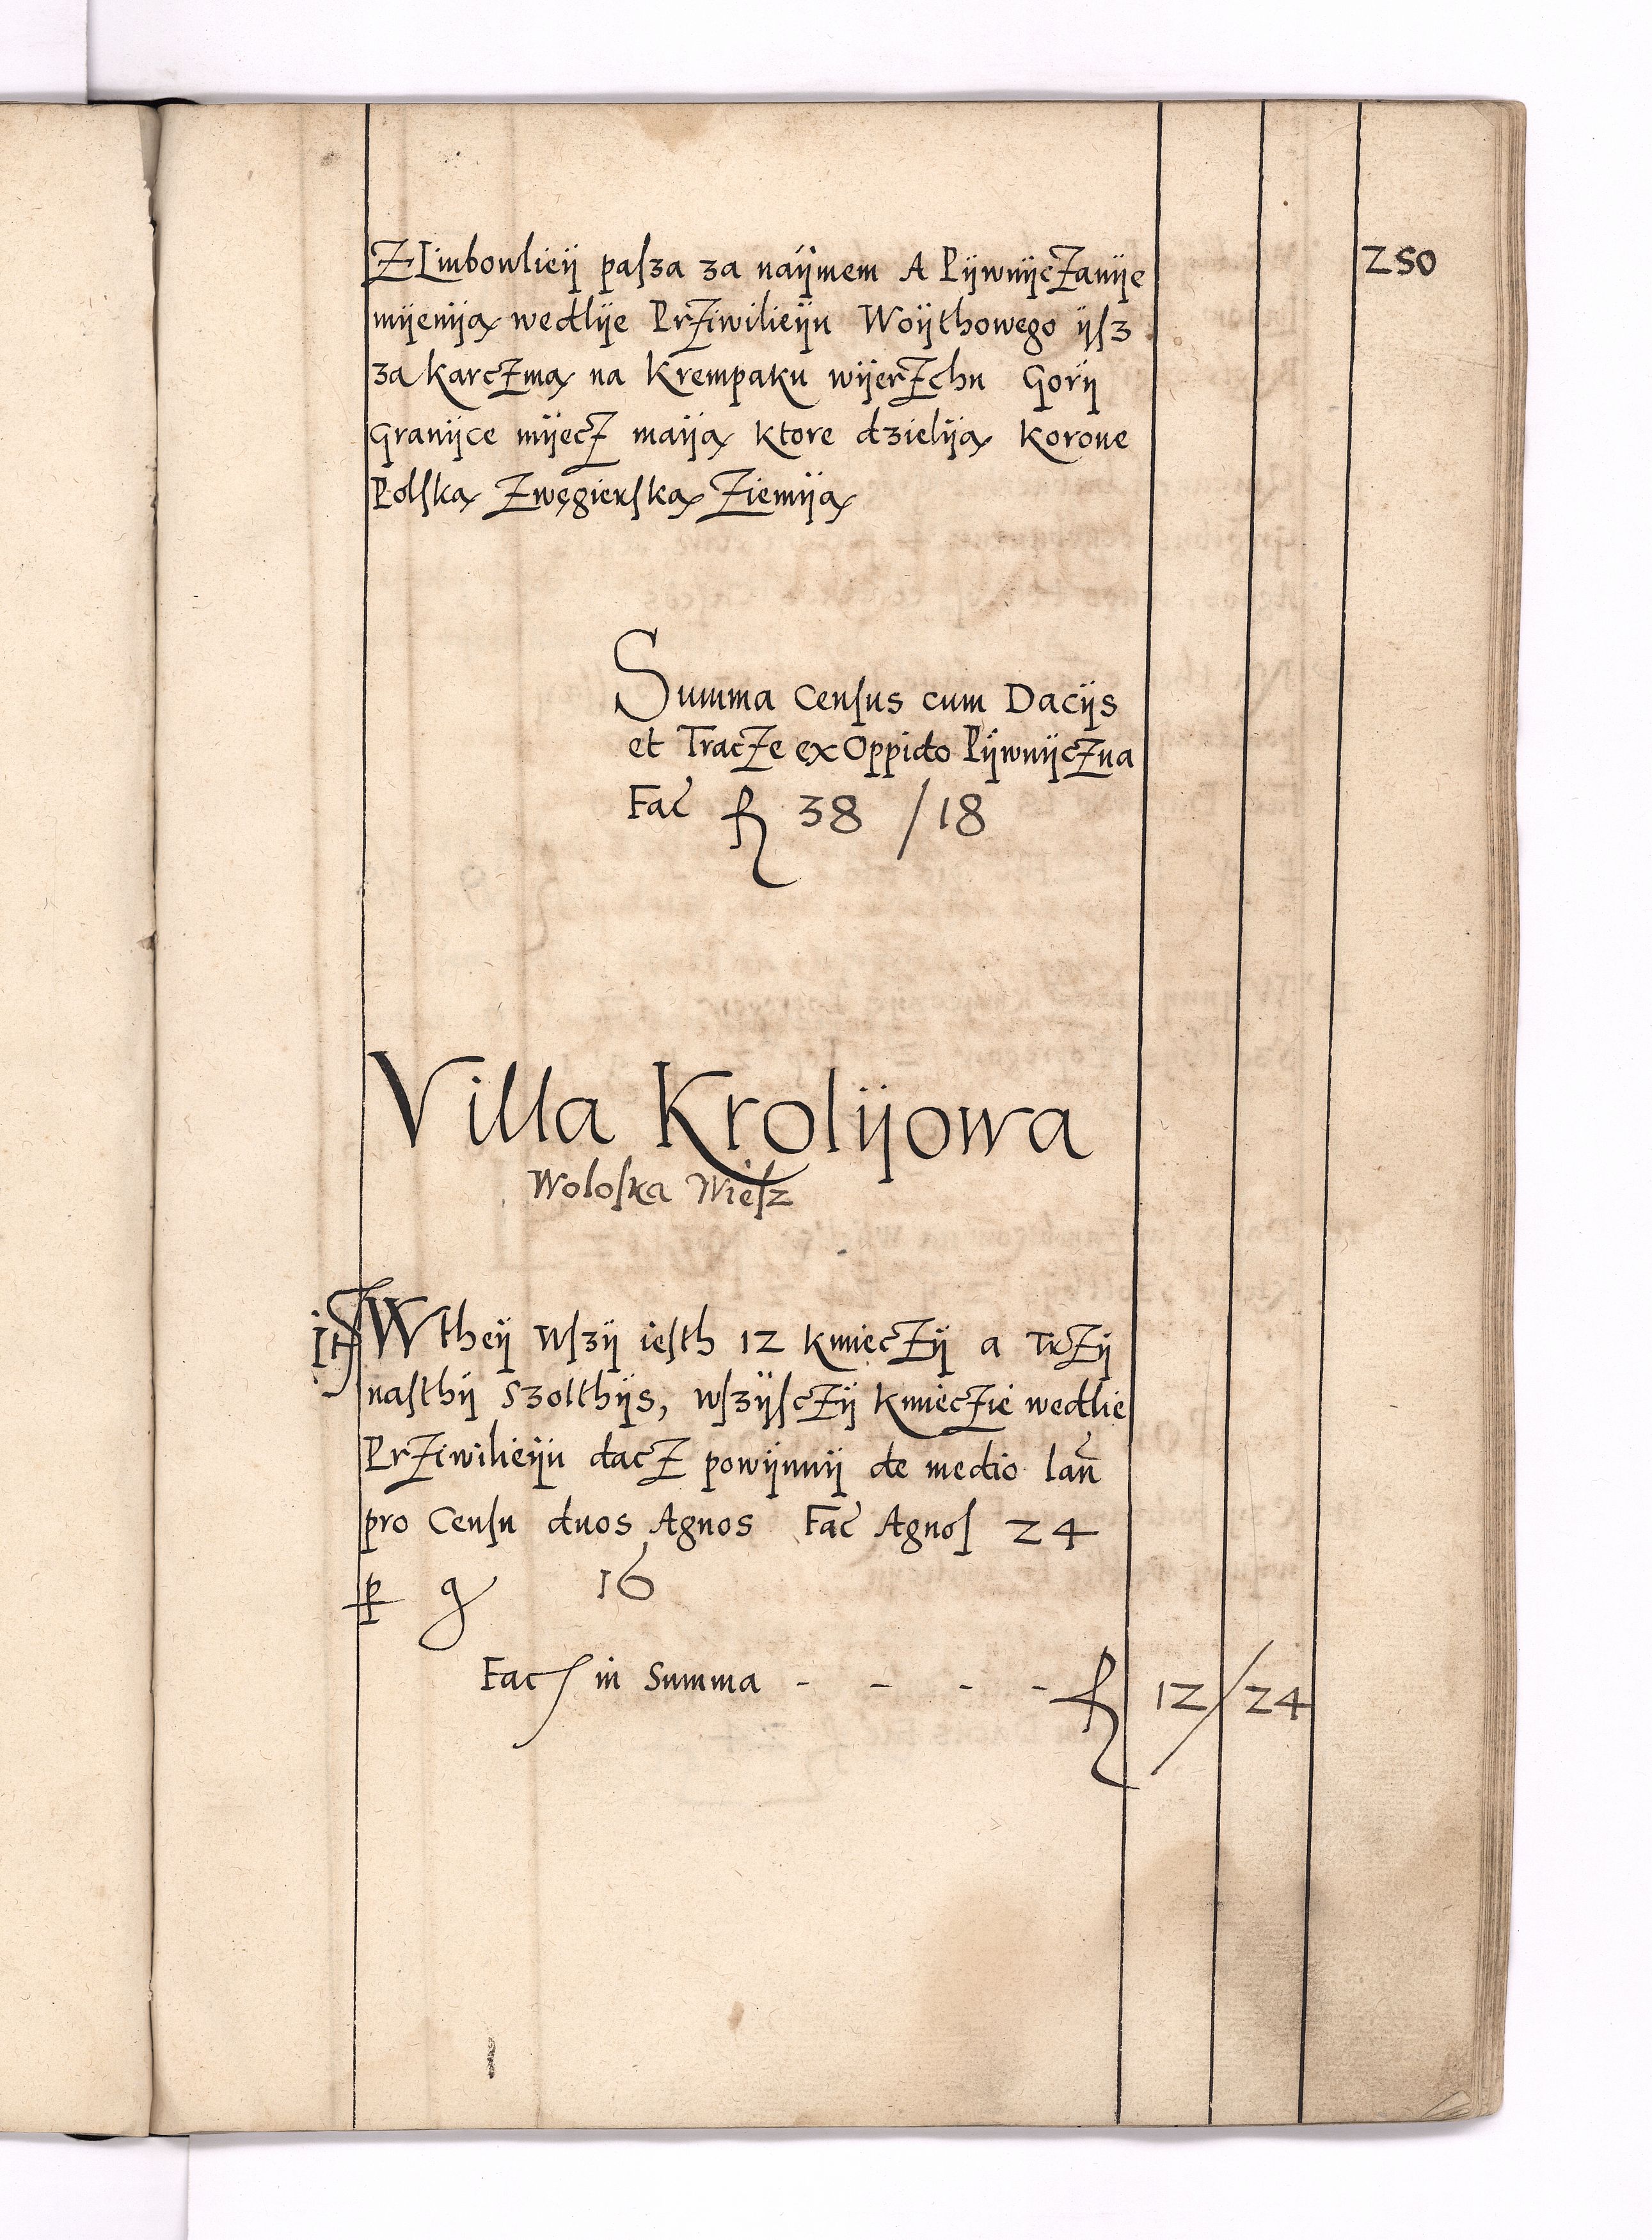 250
Z Liubowliey pasza za naÿmem A PÿwnÿcZanÿe
mÿenÿą wedlÿe PrZiwilieÿu Woÿthowego ÿsz
za karcZmą na Krempaku wÿerZchu Gorÿ
Granÿce mÿecZ maÿą ktore dzielÿą Korone
Polską Zwęgierską Ziemÿą
Summa Census cum Dacÿs
et TracZe ex Oppido PÿwnÿcZna
Fac̃ fl 38 / 18
Villa Krolÿowa
Woloska Wiesz
It W theÿ wszÿ iesth 12 kmiecZÿ a TrZÿ
nasthÿ Szolthÿs, wszÿscZÿ kmiecZie wedlie
PrZiwilieÿu dacZ powÿnnÿ de medio lan̄
pro Censu duos Agnos Fac̃ Agnos 24
p g 16
Fac in Summa - - - - fl 12 / 24